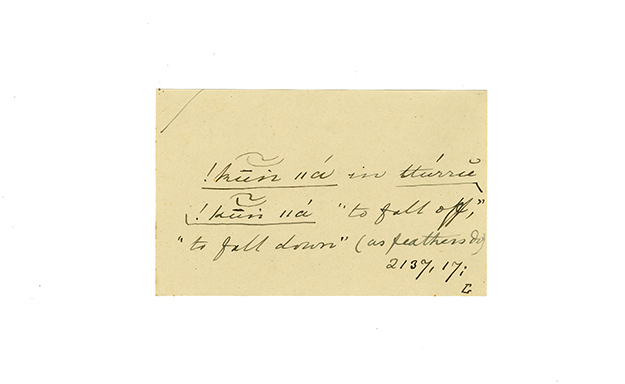 !kū̃ń ııá in ttúrrŭ
!kū̃ń ııá "to fall off,"
"to fall down" (as feathers do)
2137, 17;
L